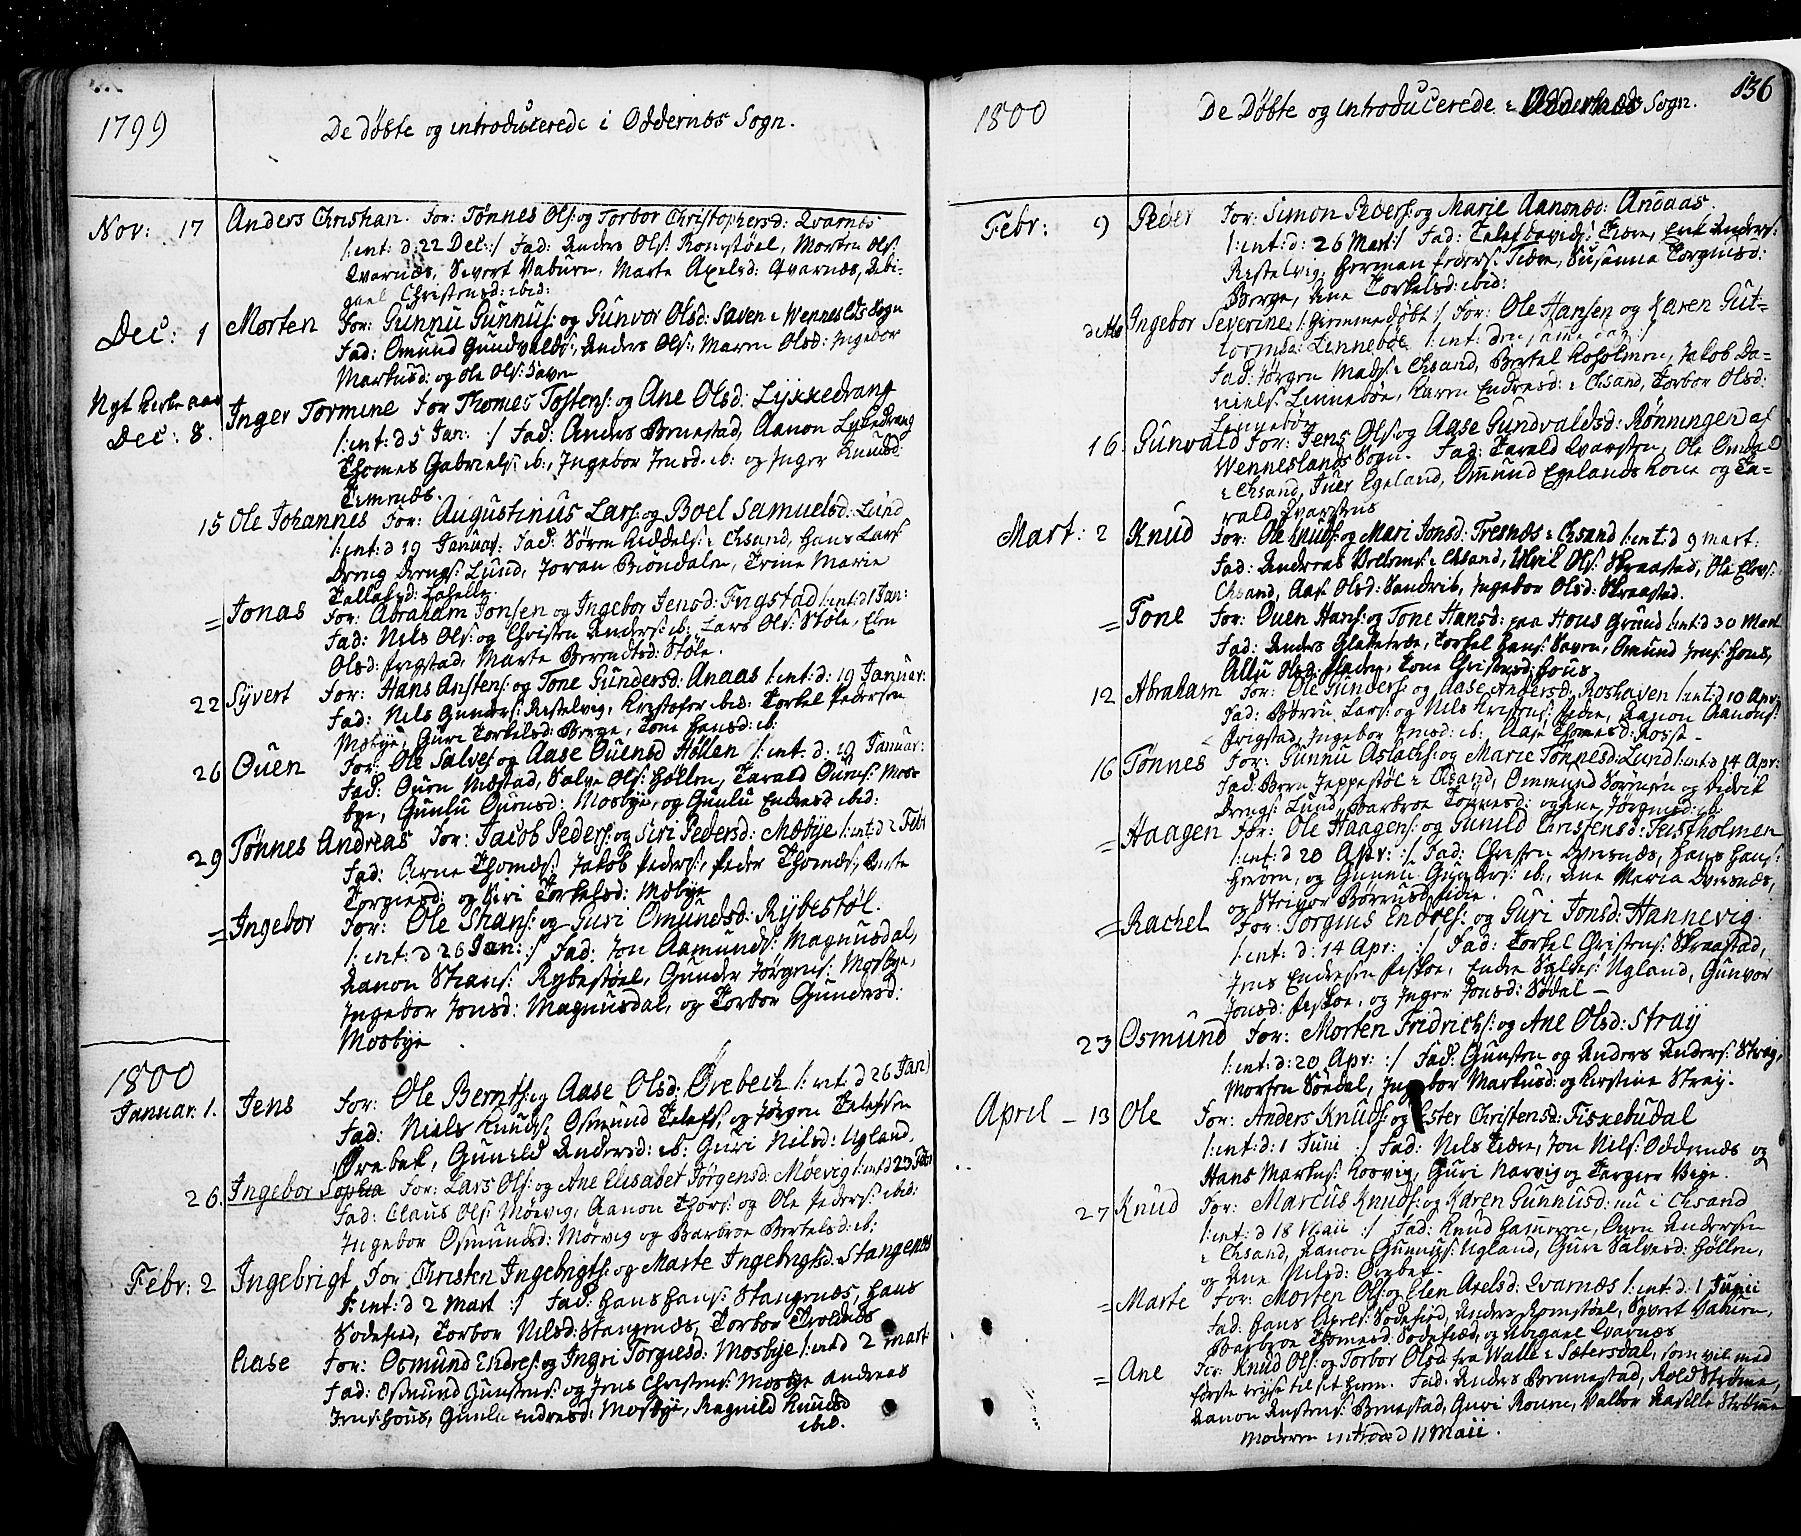 1799
De Døbte og introducerede i Oddernæs Sogn.
Nov: 17 Anders Christian. For: Tønnes Ols: og Torbor Christophersd: Qvarnæs
/:int: d: 22 Dec:/ Fad: Anders Ols: Romstøel, Morten Ols:
Qvarnæs, Severt Vaburn, Marte Axelsd: Qvarnæs, Abi-
gael Christensd: ibid:
Dec: 1 Morten For: Gunnu Gunnus: og Gunvor Olsd: Saven i Wenneslds Sogn
Fad: Omund Gundvalds:, Anders Ols:, Maren Olsd: Ingebor
Markusd: og Ole Ols: Saven
Nyt Kirke aar
Dec: 8. Inger Tormine For Thomes Tostens: og Ane Olsd: Lykkedrang
/:int: d 5 Jan: :/ Fad: Anders Bruestad, Aanon Lykkedrang
Thomes Gabriels: ib:, Ingebor Jensd: ib: og Inger Knudsd:
Timenæs.
15 Ole Johannes For: Augustinus Lars: og Boel Samuelsd: Lund
/:int: d 19 Januar: Fad: Søren Kiddels: i Chsand, Hans Lars:
Dreng Drengs: Lund, Joran Biøndalen, Trine Marie
Tallaksd:
= Jonas For: Abraham Jonsen og Ingebor Jensd: Frigstad /:int: d 1 Jan:
Fad: Nils Ols: og Christen Anders: ib:, Lars Ols: Støle, Elen
Olsd: Frigstad, Marte Berendtsd: Støle.
22 Syvert For: Hans Anstens: og Tone Gundersd: Anaas /:int: d: 19 Januar:
Fad: Nils Gunders: Ristelvig, Kristofer ibid: Torkel Pedersen
Mæbye, Guri Torkelsd: Berge, Tone Hansd: ib:
26 Ouen For: Ole Salves: og Aase Ouensd Høllen /:int: d: 19 Januar:
Fad: Ouen Mæstad, Salve Ols: Høllen, Tarald Ouens: Mos-
bye, Gunlu Ouensd: Mosbye, og Gunlu Endresd ibid:
29 Tønnes Andreas For: Jacob Peders: og Siri Pedersd: Mæbye /:int: d 2 Febr
Fad: Arne Thomes: Jakob Peders:, Peder Thomes:, Anne
Torgiersd: og Siri Torkelsd: Mæbye
= Ingebor For: Ole Stians: og Guri Omundsd: Rybestøl.
/:int: d 26 Jan: :/ Fad: Jon Aamunds: Magnusdal,
Aanon Stians: Rybestøel, Gunder Jørgens: Mosbye,
Ingebor Jonsd: Magnusdal, og Torbor Gundersd:
Mosbye.
1800
Januar: 1. Jens For: Ole Bernts: og Aase Olsd: Ørebech /:int: d 26 Jan)
Fad: Niels Knuds: Osmund Telefs: og Jørgen Telefsen
Ørebek, Gunild Andersd: ib: Guri Nilsd: Ugland.
26. Ingebor Sophia For: Lars Ols: og Ane Elisabet Jørgensd: Møevig /:int: d 23 Feb:
Fad: Claus Ols: Møevig, Aanon Thors: og Ole Peders: ibid:
Ingebor Osmundsd: Mørvig og Barbroe Bertelsd: ib:
Febr: 2 Ingebrigt For Christen Ingebrigts: og Marte Ingebrigtsd: Stangenæs
/:int: d 2 Mart :/ Fad: Hans Hans: Stangenæs, Hans
Sodefied, Torbor Nilsd: Stangenæs, Torbor Trolenæs
Aase For: Osmund Endres: og Ingri Torgiesd: Mosbye /:int: d 2 mart:
Fad: Osmund Gunstens: og Jens Christens: Mosbye Andreas
Jens: Hous, Gunla Endresd: Mosbye, Ragnild Knudsd
ibid.
136
1800
De Døbte og introducerede i Oddernæs Sogn.
Febr: 9 Peder For: Simon Peders: og Marie Aanonsd: Andaas.
/:int: d: 26 Mart:/ Fad: Telef Davids: Thore, Anders:
Restelvig, Herman Peders: Tveen, Susanna Torgiusd:
Berge, Ane Torkelsd: ibid:
detto Ingebor Severine /:hiemme døbt:/ For: Ole Hansen og Karen Gut-
tormsd: Linneboe /:int: den samme dag:/
Fad: Jørgen Mads: i Chsand, Bertel Kosholmen, Jakob Da-
niels: Linnebøe, Karen Endresd: i Chsand, Torbor Olsd:
Linnebøe
16. Gunvald For: Jens Ols: og Aase Gundvaldsd: Rønningen af
Wenneslands Sogn. Fad: Tarald Qvarsten, Ole Omdal
i Chsand, Iver Egeland, Omund Egelands Kone og Ta-
rald Qvarstens
Mart: 2 Knud For: Ole Knuds: og Mari Jonsd: Tresnæs i Chsand /:int: d 9 mart:
Fad: Andreas Vellums: i Chsand, Ols: Skraastad, Ole Elevs:
Chsand, Aase Olsd: Sandvik, Ingebor Olsd: Skraastad.
= Tone For: Ouen Hans: og Tone Hansd: paa Hous Grund /:int: d 30 Mart
Fad: Anders Glattetræ, Torkel Hans: Saven, Omund Jens: Hous,
Allu Olsd: Tone Christensd: Hous.
12 Abraham For: Ole Gunders: og Aase Andersd: Roshaven /:int: d 10 Apr:
Fad: Børru Lars: og Nils Kristens: Fidie, Aanon Aanons:
Frigstad, Ingebor Jensd: ib:, Aase Thomesd: Kosse
16 Tønnes For: Gunnu Aslachs: og Marie Tønnesd: Lund /:int: d 14 Apr:
Fad: Bern Jeppestøl i Chsand, Ommund Sørensen og Didrik
Drengs: Lund, Barbroe Tønnesd: og Ane Jørgensd: ib:
= Haagen For: Ole Haagens: og Gunild Christensd: Tustholmen
/:int: d 20 Apr: :/ Fad: Christen Dvesnæs, Hans Hans:
Herøen, og Gunnu Gunders: ib:, Ane Maria Dvesnæs,
og Børrusd: Fidie.
= Rachel For: Torgius Endres: og Guri Jonsd: Hannevig.
/:int: d: 14 Apr: :/ Fad: Torkel Christens: Skraastad,
Jens Endresen Fiskoe, Endre Salves: Ugland, Gunvor
Jonsd: Fiskoe, og Inger Jonsd: Sødal –
23 Osmund For: Morten Fridrichs: og Ane Olsd: Stray
/:int: d: 20 Apr: :/ Fad: Gunsten og Anders Anders: Stray,
Morten Søedal, Ingebor Markusd: og Kirstine Stray.
April – 13 Ole For: Anders Knuds: og Ester Christensd: Fiskebudal
/:int: d: 1 Juni :/ Fad: Nils Tveen, Jon Nils: Oddernæs og
Hans Markus: Kosvig, Guri Narvig og Torgier Vige.
27 Knud For: Marcus Knuds: og Karen Gunnusd: nu i Chsand
/:int: d 18 Maii :/ Fad: Knud Hameren, Ouen Andersen
i Chsand, Aanon Gunnus: Ugland, Gure Salvesd: Høllen,
og Ane Nilsd: Ørebek.
= Marte For: Morten Ols: og Elen Axelsd: Qvarnæs /:int: d: 1 Junii
Fad: Hans Axels: Sodefied, Anders Romstøel, Syvert Vaburn,
Barbroe Thomesd: Sodefied, og Abigael Qvarnæs
= Ane For: Knud Ols: og Torbor Olsd fra Walle i Sætersdal, som vil med
første reise til sit hiem. Fad: Anders Brunestad, Rold Strømme,
Aanon Anstens: Bruestad, Guri Ronen, Valbor Strømme
Moderen introd: d 11 Maii.